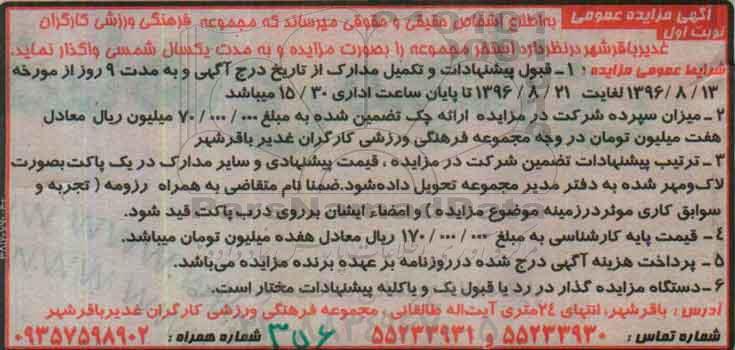 آگهی مزایده عمومی
نوبت اول
به اطلاع اشخاص حقیقی و حقوقی میرساند که مجموعه فرهنگی ورزشی کارگران
غدیر باقرشهر درنظر دارد استخر مجموعه را بصورت مزایده و به مدت یکسال شمسی واگذار نماید.
شرایط عمومی مزایده : ۱ـ قبول پیشنهادات و تکمیل مدارک از تاریخ درج آگهی و به مدت ۹ روز از مورخه
۱۳ / ۸ / ۱۳۹۶ لغایت ۲۱ / ۸ / ۱۳۹۶ تا پایان ساعت اداری ۳۰ / ۱۵ میباشد
۲ـ میزان سپرده شرکت در مزایده ارائه چک تضمین شده به مبلغ ۰۰۰/ ۰۰۰/ ۷۰ میلیون ریال معادل
هفت میلیون تومان در وجه مجموعه فرهنگی ورزشی کارگران غدیر باقرشهر
۳ـ ترتیب پیشنهادات تضمین شرکت در مزایده ، قیمت پیشنهادی و سایر مدارک در یک پاکت بصورت
لاک ومهر شده به دفتر مدیر مجموعه تحویل داده شود.ضمنا نام متقاضی به همراه رزومه ( تجربه و
سوابق کاری موثر درزمینه موضوع مزایده ) و امضاء ایشان بر روی درب پاکت قید شود.
۴ـ قیمت پایه کارشناسی به مبلغ ۰۰۰/ ۰۰۰/ ۱۷۰ ریال معادل هفده میلیون تومان میباشد.
۵ـ پرداخت هزینه آگهی درج شده درروزنامه بر عهده برنده مزایده می‌باشد.
۶ـ دستگاه مزایده گذار در رد یا قبول یک و یا کلیه پیشنهادات مختار است.
آدرس : باقرشهر، انتهای ۲۴متری آیت‌اله طالقانی ، مجموعه فرهنگی ورزشی کارگران غدیر باقرشهر
شماره تماس : ۵۵۲۳۳۹۳۰ و ۵۵۲۳۳۹۳۱ ۳۵۶ شماره همراه : ۰۹۳۵۷۵۹۸۹۰۲
ParsNamadData